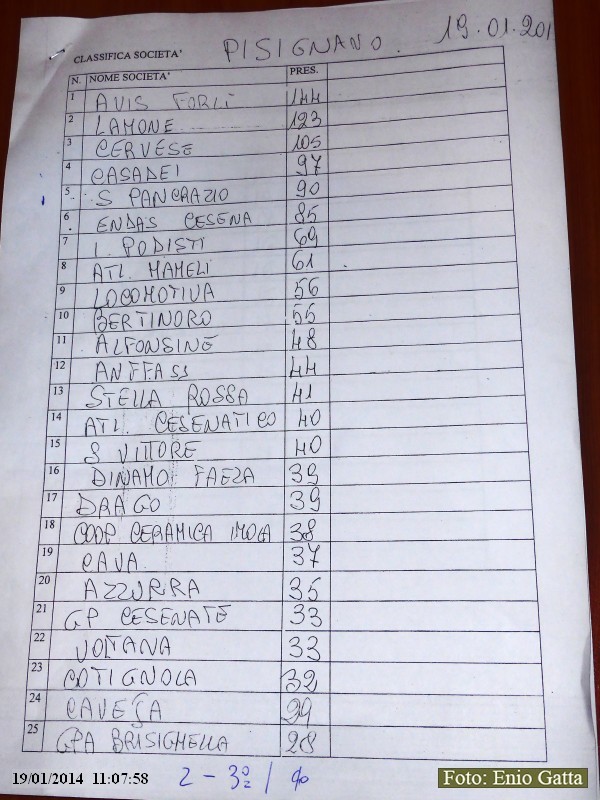 PISIGNANO. 19.01.201
CLASSIFICA SOCIETA'
N. NOME SOCIETA' PRES.
1 AVIS FORLI 144
2 LAMONE 123
3 CERVESE 105
4 CASADEI 97
5 S PANCRAZIO 90
6 ENDAS CESENA 85
7 I PODISTI 69
8 ATL. MAMELI 61
9 LOCOMOTIVA 56
10 BERTINORO 55
11 ALFONSINE 48
12 ANFFASS 44
13 STELLA ROSSA 41
14 ATL. CESENATICO 40
15 S VITTORE 40
16 DINAMO FAEZA 39
17 DRAGO 39
18 COOP CERAMICA IMOLA 38
19 CAVA 37
20 AZZURRA 35
21 GP CESENATE 33
22 VOLTANA 33
23 COTIGNOLA 32
24 29
25 GPA BRISIGHELLA 28
19/01/2014 11:07:58 2 - 3º /
Foto: Enio Gatta